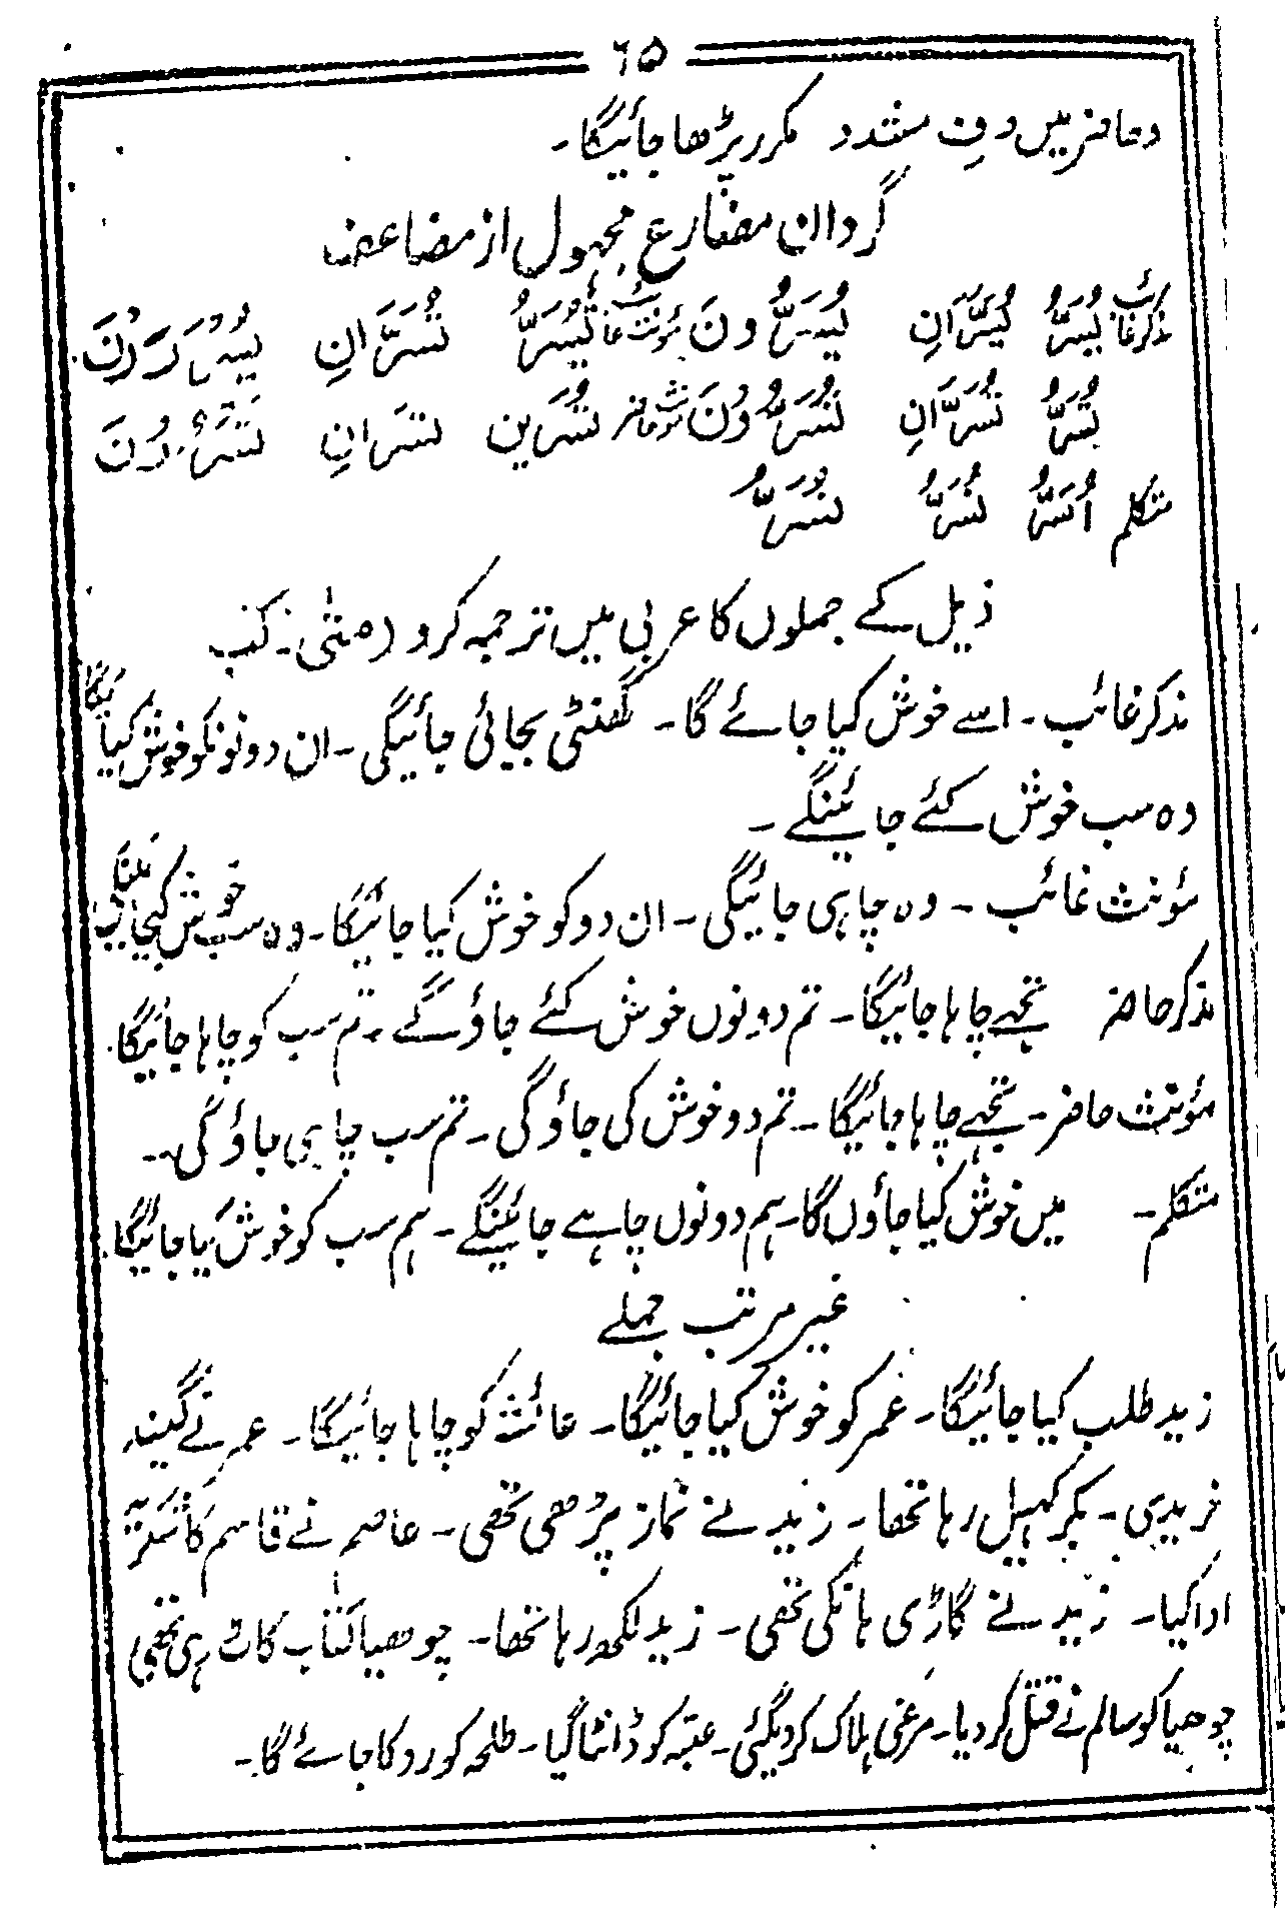 ۶۵
وحاضر میں حرف مشدد مکرر پڑھا جائیگا۔
گردان مضارع مجہول از مضاعف
مذکر غائب یُسَرُّ یُسَرَّانِ یُسَرُّونَ مؤنث غائب تُسَرُّ تُسَرَّانِ یُسْرَرْنَ
تُسَرُّ تُسَرَّانِ تُسَرُّونَ مؤنث حاضر تُسَرِّین تسَرانِ تُسْرَرْنَ
متکلم اُسَرُّ نُسَرُّ نُسَرُّ
ذیل کے جملوں کا عربی میں ترجمہ کرو
مذکر غائب۔ اسے خوش کیا جائے گا۔ گھنٹی بجائی جائیگی۔ ان دونونکو خوش کیا جائیگا
وہ سب خوش کئے جائینگے۔
مؤنث غائب۔ وہ چاہی جائیگی۔ ان دو کو خوش کیا جائیگا۔ وہ سب خوش کیجائینگی
مذکر حاضر تجہے چاہا جائیگا۔ تم دونوں خوش کئے جاؤگے۔ تم سب کو چاہا جائیگا۔
مؤنث حاضر۔ تجہے چاہا جائیگا۔ تم دو خوش کی جاؤگی۔ تم سب چاہی جاؤگی۔
متکلم۔ میں خوش کیا جاؤں گا۔ ہم دونوں چاہے جائینگے۔ ہم سب کو خوش کیا جائیگا۔
غیر مرتب جملے
زید طلب کیا جائیگا۔ عمر کو خوش کیا جائیگا۔ عائشہ کو چاہا جائیگا۔ عمر نے گیند
خریدی۔ بکر کہیل رہا تھا۔ زید نے نماز پڑھی تھی۔ عاصم نے قاسم کا شکریہ
ادا کیا۔ زید نے گاڑی ہانکی تھی۔ زید لکھ رہا تھا۔ چوھیا کتاب کاٹ رہی تھی
چوھیا کو سالم نے قتل کر دیا۔ مرغی ہلاک کر دیگئی۔ عتبہ کو ڈانٹا گیا۔ طلحہ کو روکا جائے گا۔